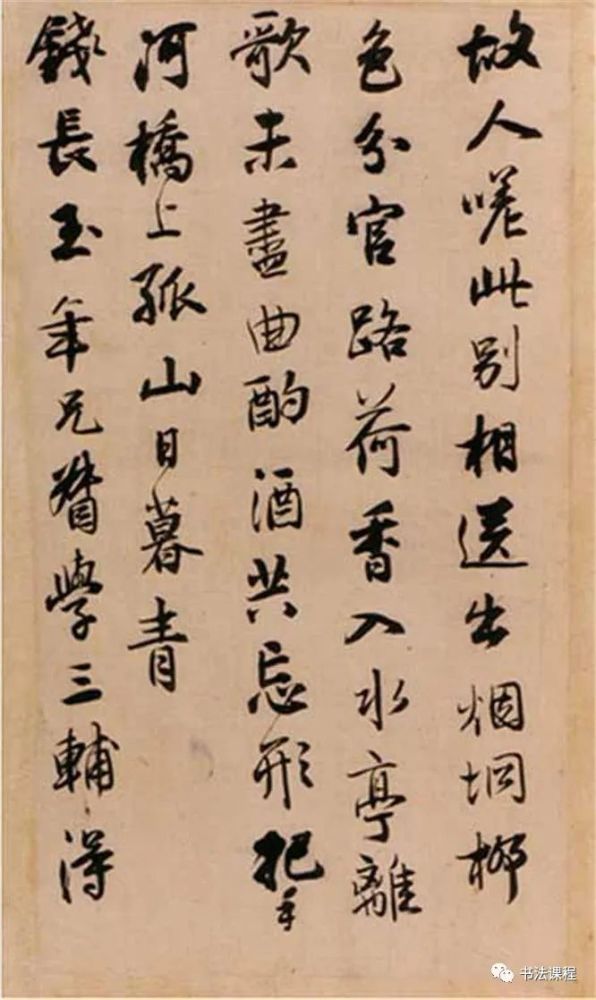 故人嗟此别相送出烟坰柳
色分官路荷香入水亭離
歌未盡曲酌酒共忘形把手
河橋上孤山日暮青
錢長玉年兄督學三輔得
书法课程